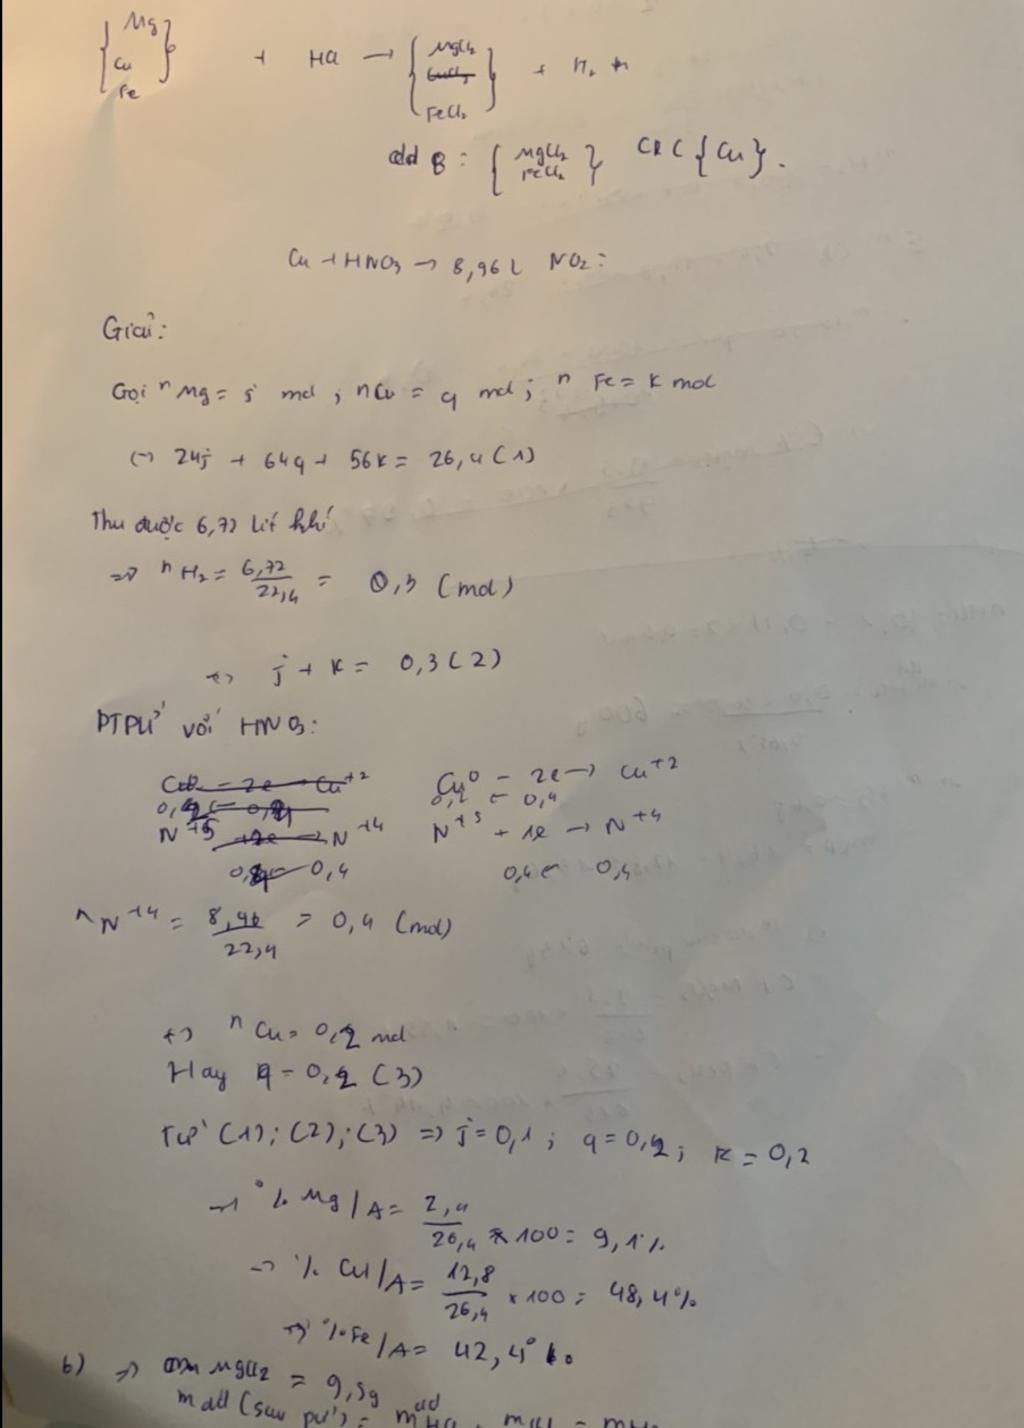 { Mg
Cu
Fe } + HCl → { MgCl2
FeCl2 } + H2
dd B : { MgCl2
FeCl2 } CRC { Cu }.
Cu + HNO3 → 8,96 L NO2 :
Giải:
Gọi nMg = j mol ; nCu = q mol ; n Fe = k mol
(→ 24j + 64q + 56k = 26,4 (1)
Thu được 6,72 lít khí
=> nH2 = 6,72/22,4 = 0,3 (mol)
↔ j + k = 0,3 (2)
PTPƯ với HNO3:
Cu⁰ - 2e → Cu+2
0,2 ← 0,4
N+5 + 1e → N+4
0,4 ← 0,4
nN+4 = 8,96/22,4 = 0,4 (mol)
↔ nCu = 0,2 mol
Hay q = 0,2 (3)
Từ (1); (2); (3) => j = 0,1 ; q = 0,2 ; k = 0,2
→ % Mg/A = 2,4/26,4 × 100 = 9,1%
→ % Cu/A = 12,8/26,4 × 100 = 48,4%
→ % Fe/A = 42,4%
b) => MgCl2 = 9,5g
mdd (sau pư) =